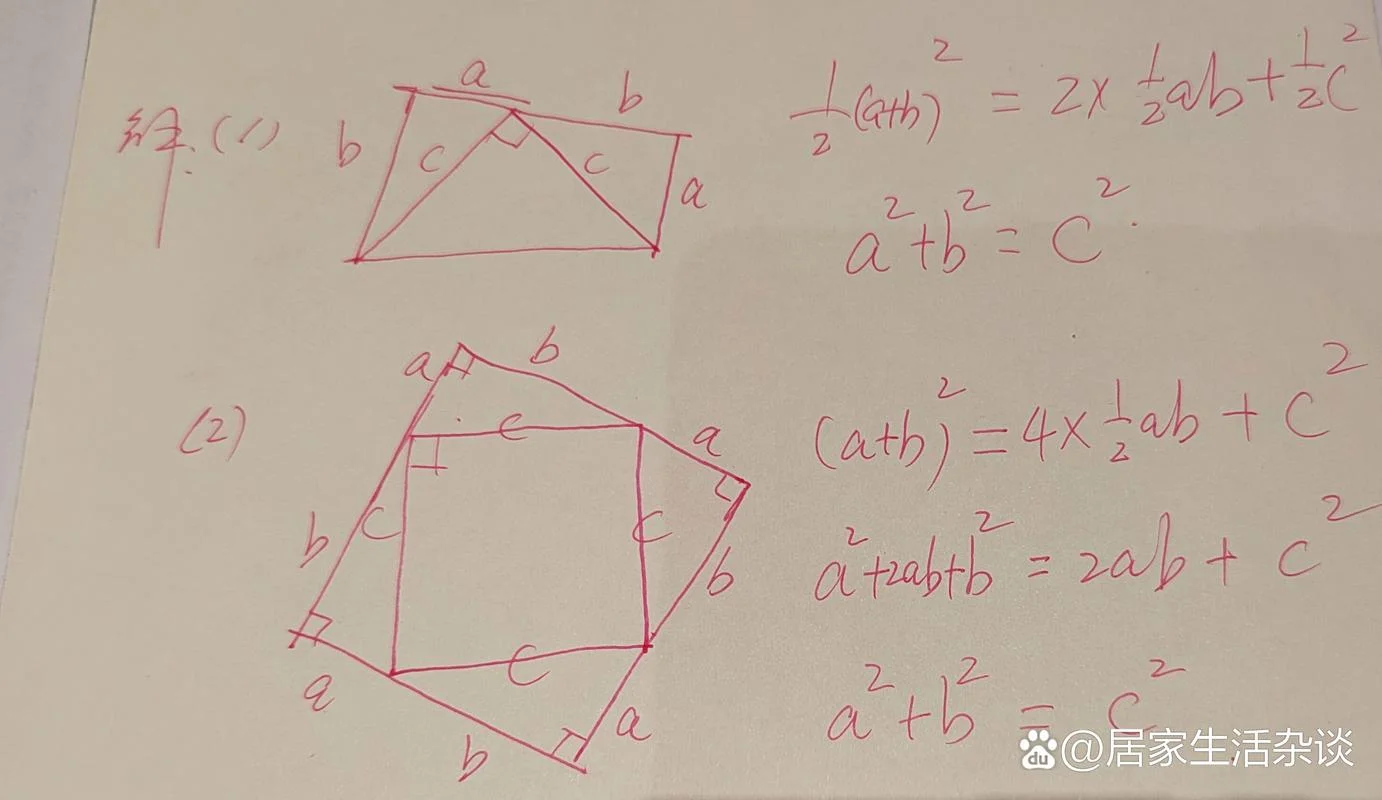 解.(1)
a
b
b
c
c
a
½(a+b)² = 2×½ab+½c²
a²+b² = c².
(2)
a
b
c
a
b
c
c
b
c
a
b
a
(a+b)² = 4×½ab + c²
a²+2ab+b² = 2ab + c²
a²+b² = c²
du @居家生活杂谈